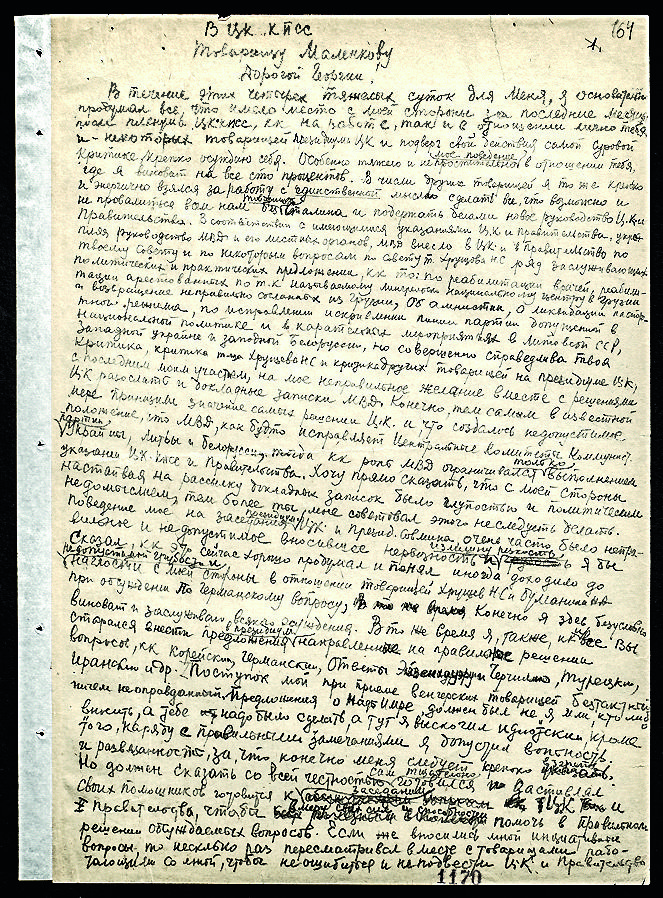 В ЦК КПСС
164
Товарищу Маленкову
Дорогой Георгий!
В течение этих четырех тяжелых суток для меня, я основательно
продумал все, что имело место с моей стороны за последние месяцы
после пленума ЦК КПСС, кк на работе, так и в отношении лично тебя
и - некоторых товарищей президиума ЦК и подверг свои действия самой суровой
критике, крепко осуждаю себя. Особенно тяжело и непростительно мое поведение в отношении тебя,
где я виноват на все сто процентов. В числе других товарищей я тоже крепко
и энергично взялся за работу с единственной мыслью сделать все, что возможно и
не провалиться всем нам без товарища Сталина и подержать делами новое руководство Ц.К. и
Правительства. В соответствии с имеющимися указаниями ЦК и Правительства, укре-
пляя руководство МВД и его местных органов, МВД внесло в ЦК и в Правительство по
твоему совету и по некоторым вопросам по совету т. Хрущева НС ряд заслуживающих
политических и практических предложений, кк то: по реабилитации врачей, реабили-
тации арестованных по т.к. называемому мингрельско национальному центру в Грузии
и возвращение неправильно сосланных из Грузии, Об амнистии, О ликвидации паспор-
тного режима, по исправлении искривлении линии партии допущенной в
национальной политике и в карательных мероприятиях в Литовской ССР,
Западной украине и западной белоруссии, но совершенно справедлива твоя
критика, критика т-ща Хрущева НС и критика других товарищей на президиуме ЦК,
с последним моим участием, на мое неправильное желание вместе с решениями
ЦК разослать и докладные записки МВД. Конечно, тем самым в известной
мере принизили значение самих решении Ц.К. и что создалось недопустимое
положение, что МВД, как будто исправляет Центральные Комитеты Коммунист.
партии
Украины, Литвы и белоруссии, тогда кк роль МВД ограничивалась только выполнением
указании ЦК КПСС и Правительства. Хочу прямо сказать, что с моей стороны
настаивая на рассылку докладных записок было глупостью и политическим
недомыслием, тем более ты мне советовал этого не следует делать.
Поведение мое на заседаниях президиума ЦК и Презид. Совмина, очень часто было непра-
вильное и недопустимое вносившее нервозность и излишнюю резкость я бы
сказал, кк это сейчас хорошо продумал и понял иногда доходило до
недопустимой грубости и
наглости с моей стороны в отношении товарищей Хрущева НС и булганина НА
при обсуждении по Германскому вопросу, Конечно я здесь безусловно
виноват и заслуживаю всякого осуждения. В то же время я, также, кк и все Вы
старался внести предложения в президиум направление на правильное решения
вопросов, кк Корейский, Германский, Ответы Эйзенхауеру и Черчилю, Турецкий,
Иранский и др. Поступок мой при приеме венгерских товарищей бестактный
ничем не оправданный. Предложения о Надь Имре должен был не я или кто либо
вносить, а тебе надо было сделать, а тут я выскочил идиотски, кроме
того, наряду с правильными замечаниями я допустил вольность,
и развязанность, за, что конечно меня следует крепко взгреть.
Но должен сказать со всей честностью сам тщательно готовился и заставлял
своих помошников готовится к заседаниям ЦК и
Правительства, чтобы в меру своих сил и способности помочь в правильном
решении обсуждаемых вопросов. Если же вносились мной инициативные
вопросы, то несколько раз пересматривал вместе с товарищами, рабо-
тающими со мной, чтобы не ошибиться и не подвести ЦК и Правительство
1170